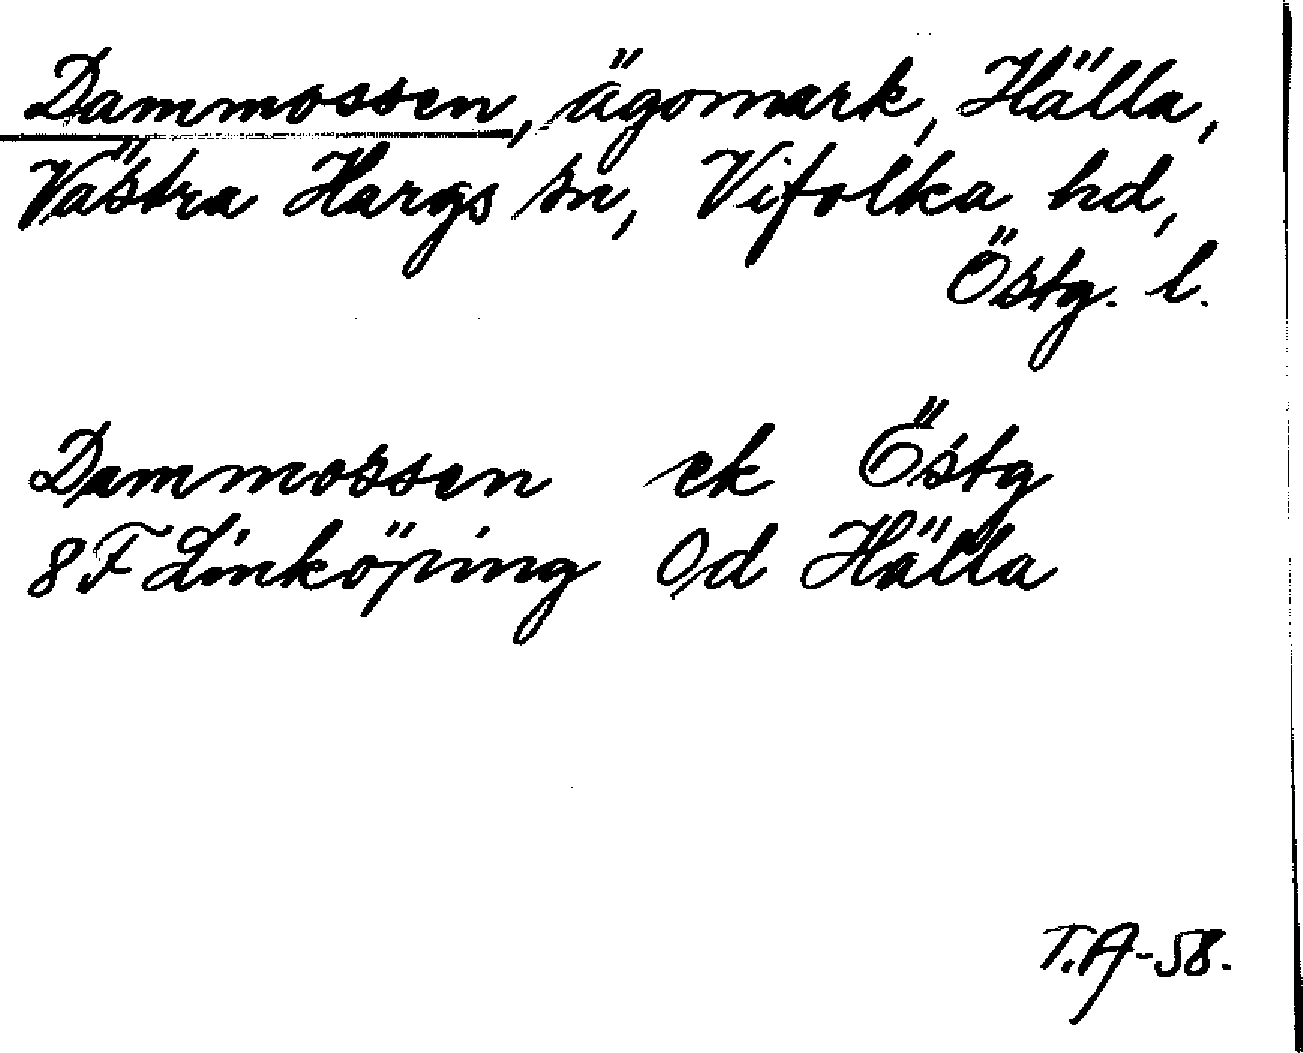 Dammossen, ägomark, Hälla,
Västra Hargs sn, Vifolka hd,
Östg. l.
Dammossen ek Östg
8F Linköping Od Hälla
T.A-58.